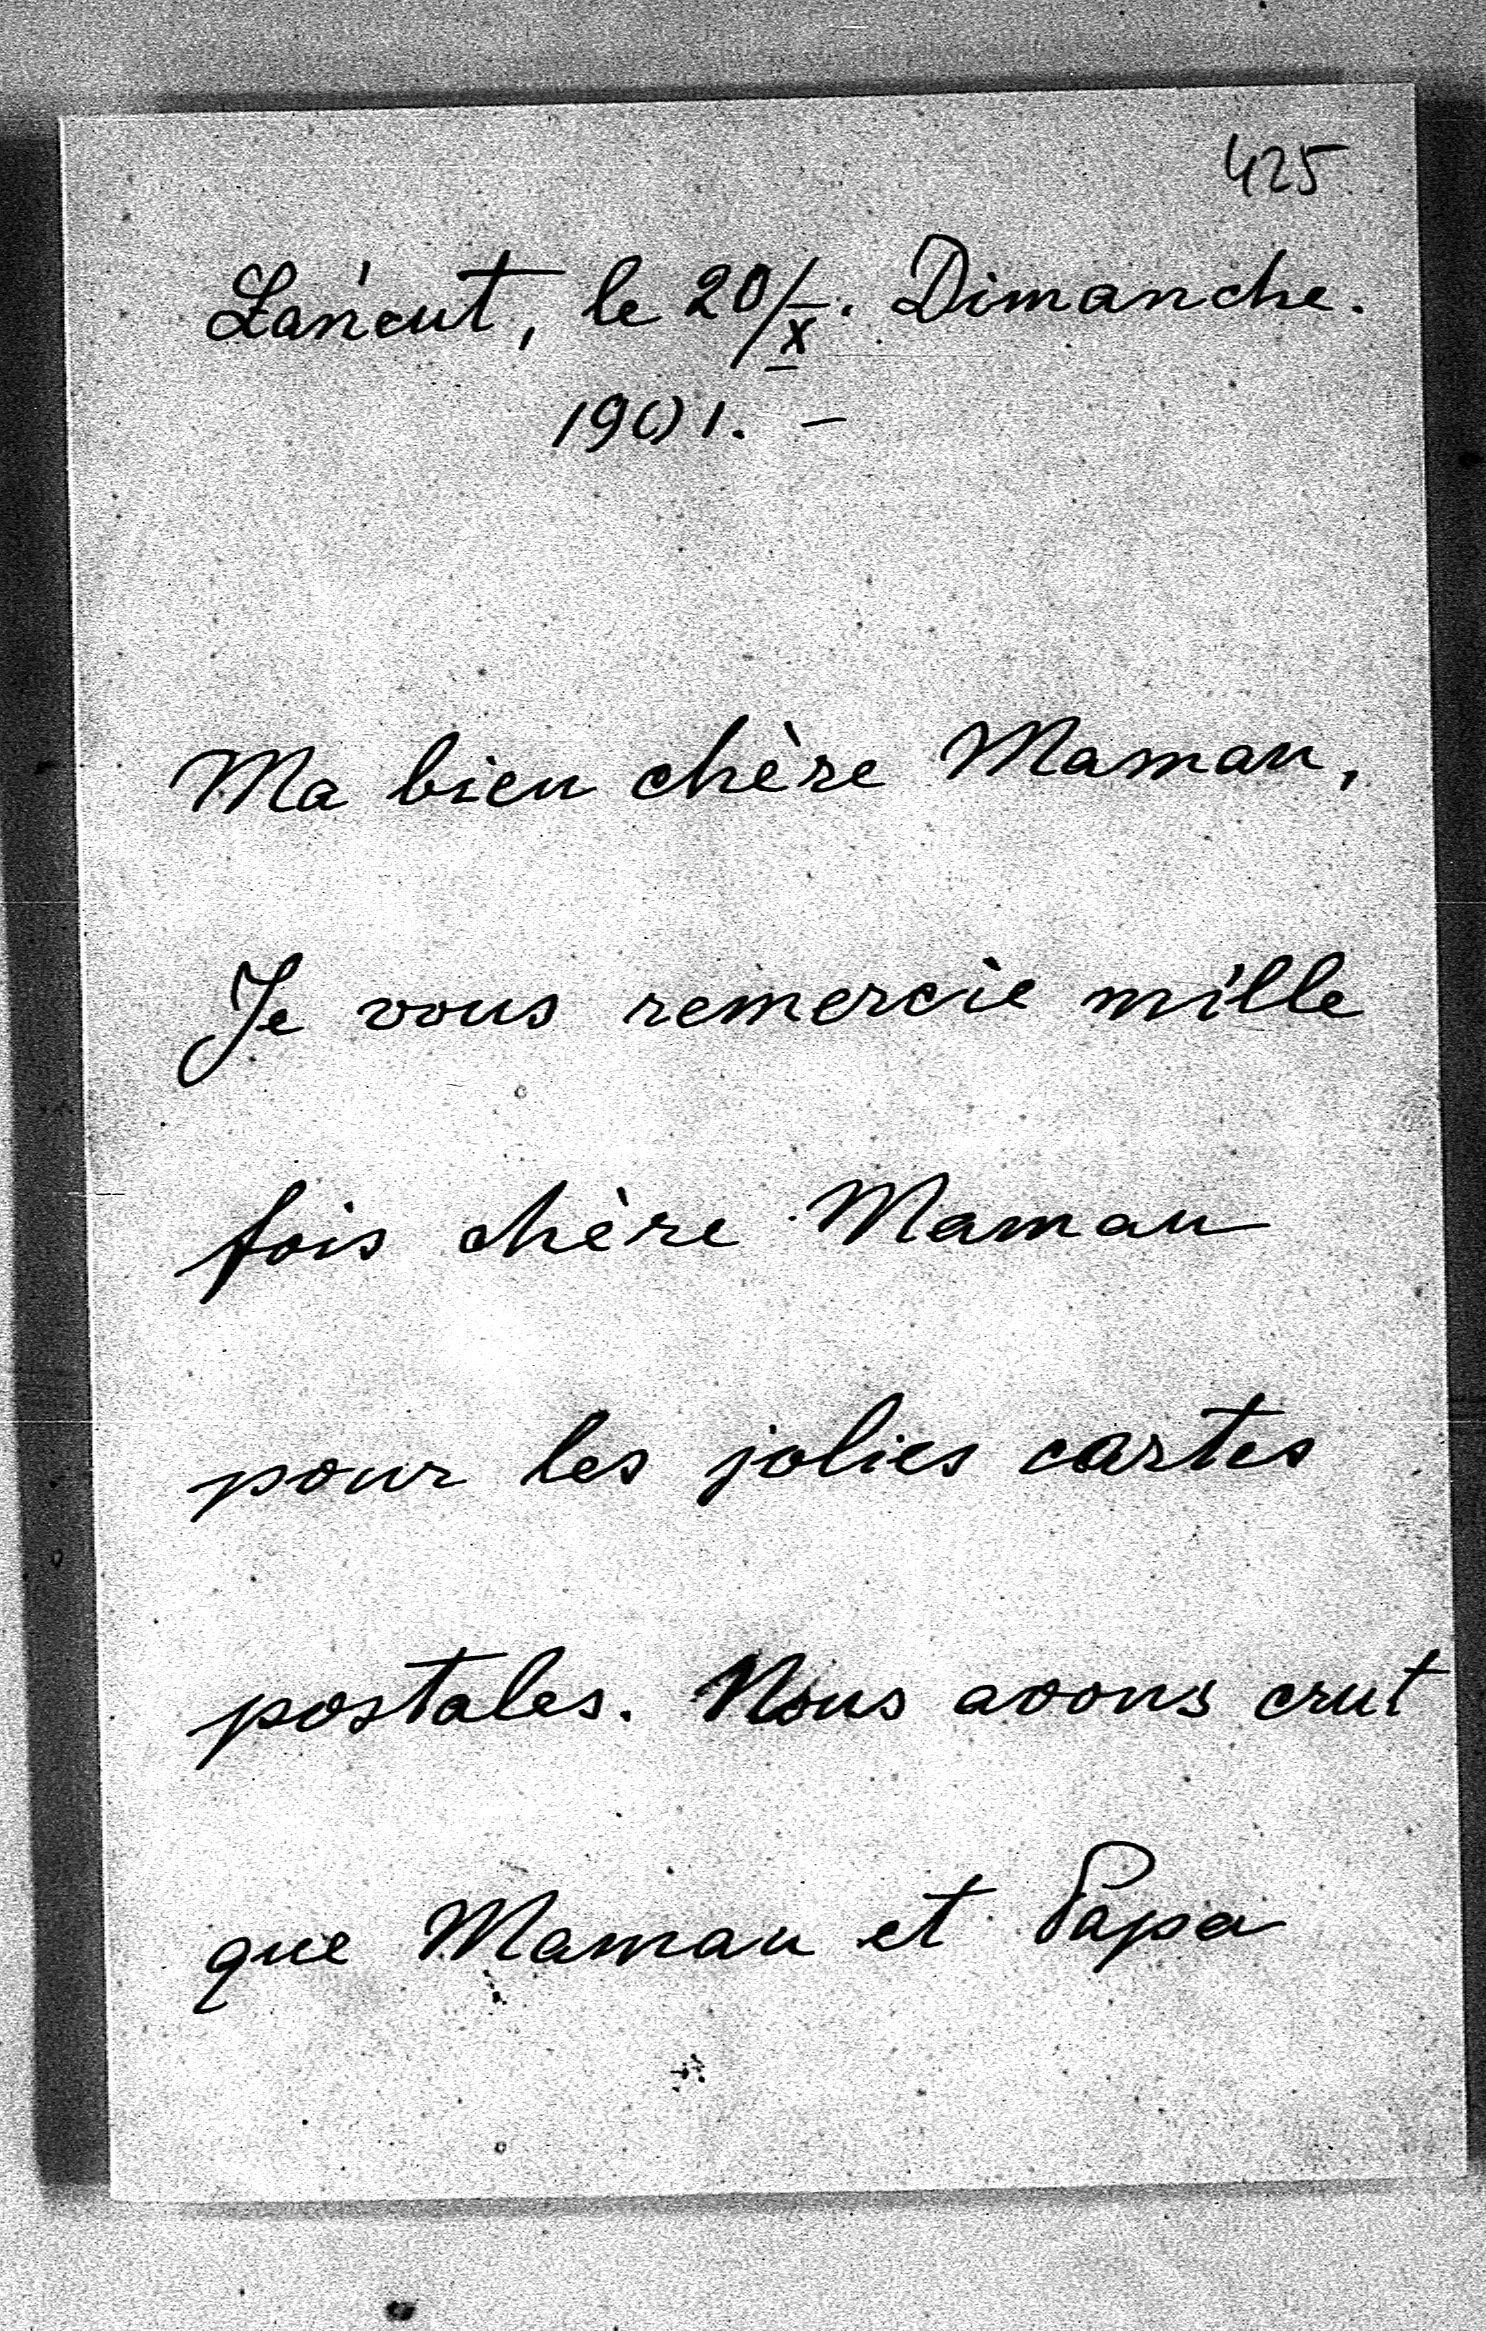 425
Łańcut, le 20/X. Dimanche.
1901. —
Ma bien chère Maman,
Je vous remercie mille
fois chère Maman
pour les jolies cartes
postales. Nous avons crut
que Maman et Papa